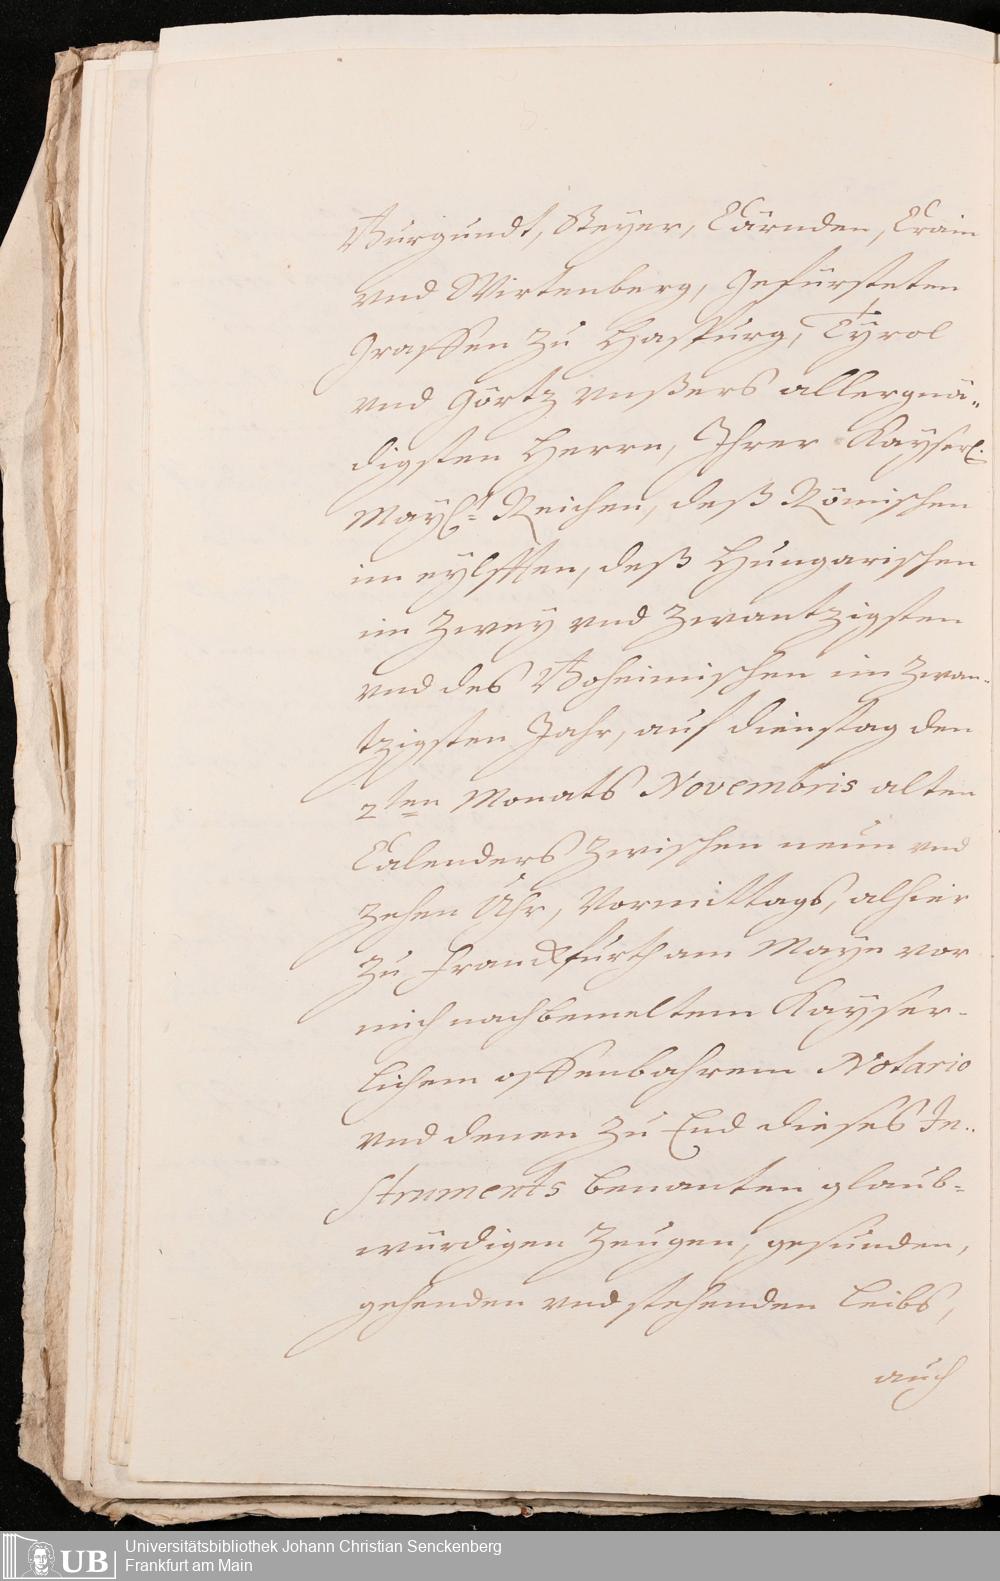 Burgundt, Steyer, Cärnden, Crain
vnd Wirtenberg, Gefürsteten
Graffen zu Haspurg, Tyrol
vnd Görtz vnßers allergnä„
digsten Herrn, Ihrer Kayserl.
Mayst. Reichen, deß Römischen
im eylfften, deß Hungarischen
im Zwey vnd Zwantzigsten
vnd des Boheimischen im Zwan-
tzigsten Jahr, auf dienstag den
2ten Monats Novembris alten
Calenders zwischen neun vnd
zehen Uhr, Vormittags, alhier
zu Franckfurth am Mayn vor
mich nachbemeltem Kayser-
lichem offenbahrem Notario
vnd denen zu End dieses In„
struments benanten glaub-
würdigen Zeugen, gesunden,
gehenden vnd stehenden Leibs,
auch
UB
Universitätsbibliothek Johann Christian Senckenberg
Frankfurt am Main